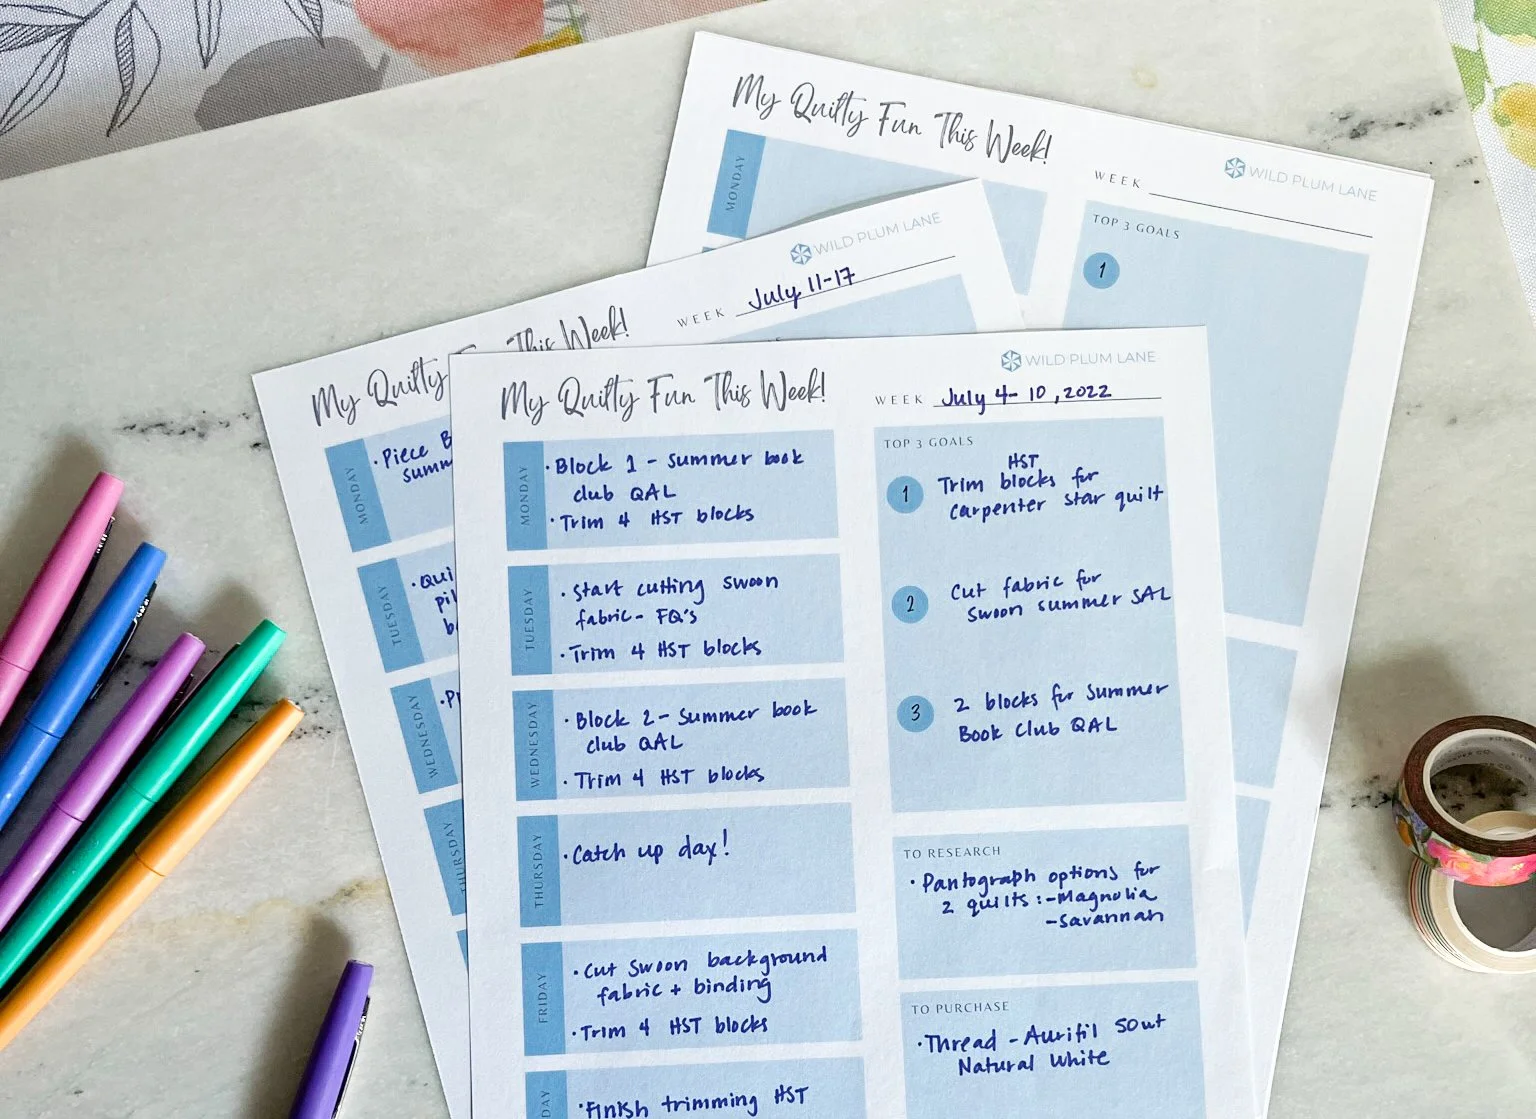 My Quilty Fun This Week!
WILD PLUM LANE
WEEK
MONDAY
TOP 3 GOALS
1
My Quilty Fun This Week!
WILD PLUM LANE
WEEK July 11-17
MONDAY
• Piece
summ
TUESDAY
• Qui
pil
WEDNESDAY
THURSDAY
My Quilty Fun This Week!
WILD PLUM LANE
WEEK July 4-10, 2022
MONDAY
• Block 1 - Summer book
club QAL
• Trim 4 HST blocks
TUESDAY
• Start cutting swoon
fabric - FQ's
• Trim 4 HST blocks
WEDNESDAY
• Block 2 - Summer book
club QAL
• Trim 4 HST blocks
THURSDAY
• Catch up day!
FRIDAY
• Cut Swoon background
fabric + binding
• Trim 4 HST blocks
DAY
• Finish trimming HST
TOP 3 GOALS
1
HST
Trim blocks for
carpenter star quilt
2
Cut fabric for
Swoon summer SAL
3
2 blocks for Summer
Book Club QAL
TO RESEARCH
• Pantograph options for
2 quilts: - Magnolia
- Savannah
TO PURCHASE
• Thread - Aurifil 50wt
Natural White